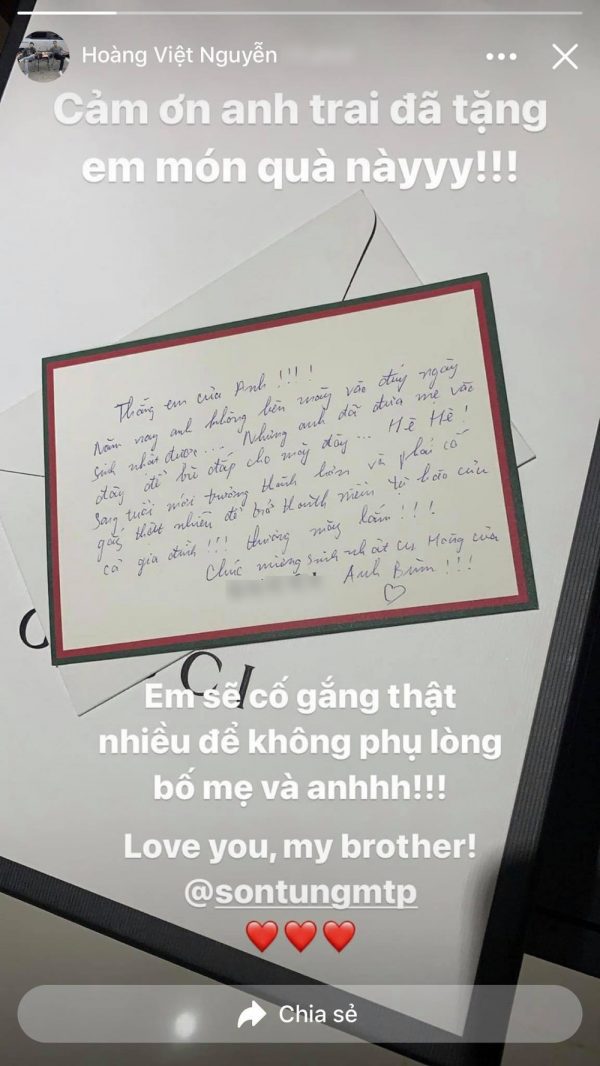 Hoàng Việt Nguyễn
Cảm ơn anh trai đã tặng
em món quà nàyyy!!!
Thằng em của Anh !!!!
Năm nay anh không bên mày vào đúng ngày
sinh nhật được... Nhưng anh đã đưa mẹ vào
đây để bù đắp cho mày đây... Hê Hê!
Sang tuổi mới trưởng thành hơn và phải cố
gắng thật nhiều để trở thành niềm tự hào của
cả gia đình !!! Thương mày lắm !!!
Chúc mừng sinh nhật cu Hoàng của
Anh Bùm !!!
G CCI
Em sẽ cố gắng thật
nhiều để không phụ lòng
bố mẹ và anhhh!!!
Love you, my brother!
@sontungmtp
Chia sẻ